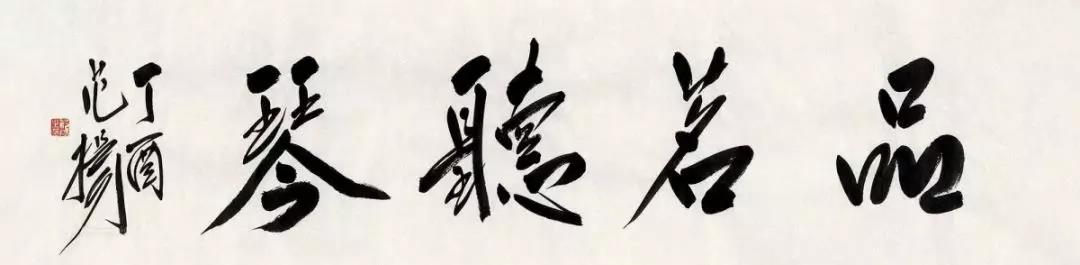 品茗聽琴
丁酉
范揚